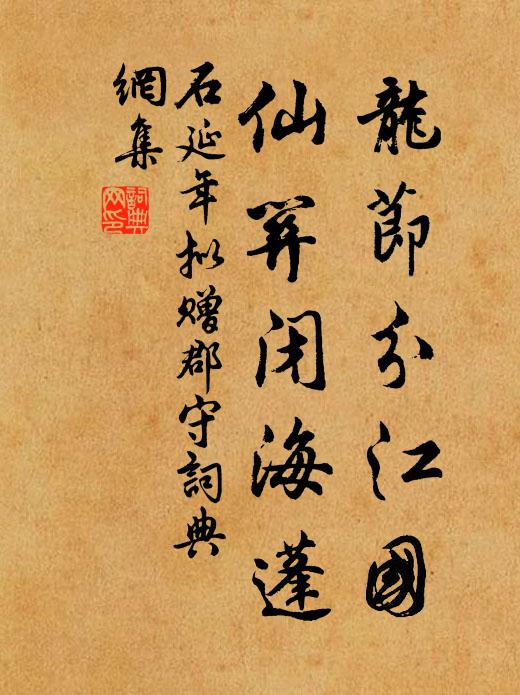 龍節分江國
仙關閉海蓬
石延年拟贈郡守詞典
網集
詞典
网印